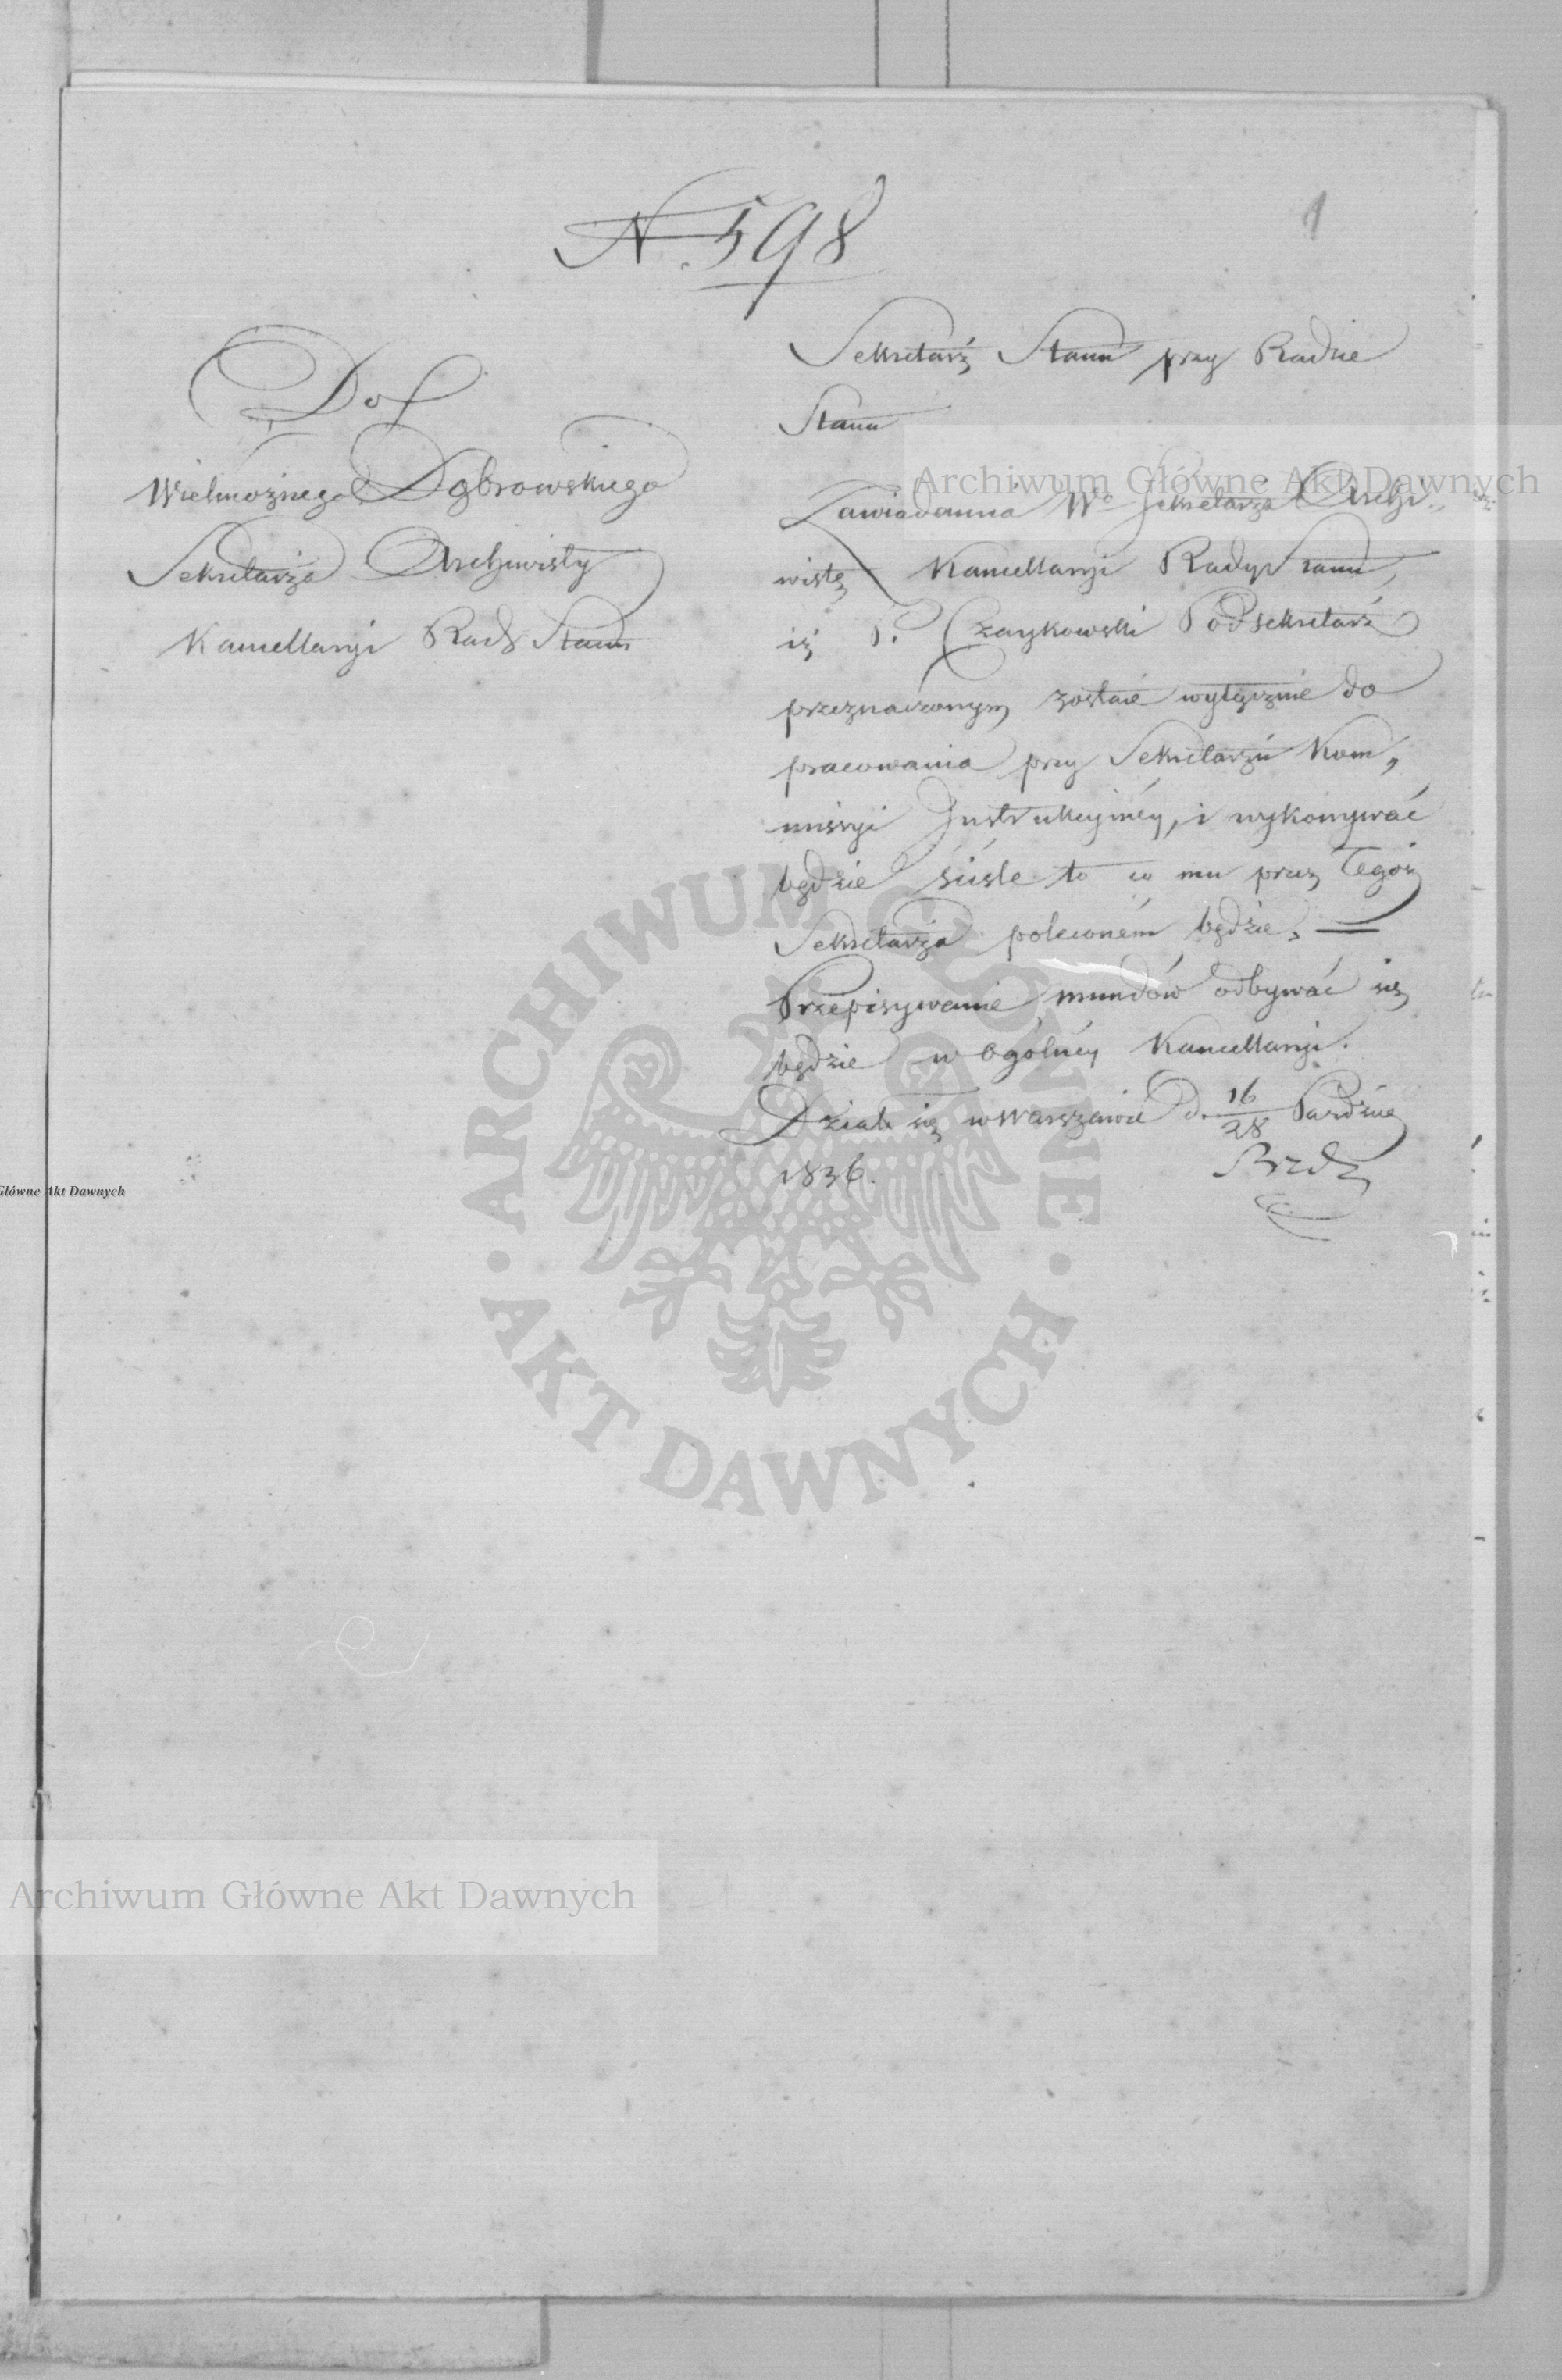 N. 598
1
Do
Wielmożnego Dąbrowskiego
Sekretarza Archiwisty
Kancellaryi Rady Stanu
Sekretarz Stanu przy Radzie
Stanu
Zawiadamia Wo Sekretarza Archi„
wistę Kancellaryi Rady Stanu,
iż P. Czaykowski Podsekretarz
przeznaczonym zostaie wyłącznie do
pracowania przy Sekretarzu Kom„
missyi Instrukcyinéy, i wykonywać
będzie ściśle to co mu przez Tegoż
Sekretarza poleconém będzie, —
Przepisywanie mundów odbywać się
będzie w ogólnéy Kancellaryi.
Działo się w Warszawie d. 16/28 Paździe
1836.
Archiwum Główne Akt Dawnych
ARCHIWUM GŁÓWNE · AKT DAWNYCH ·
Główne Akt Dawnych
Archiwum Główne Akt Dawnych